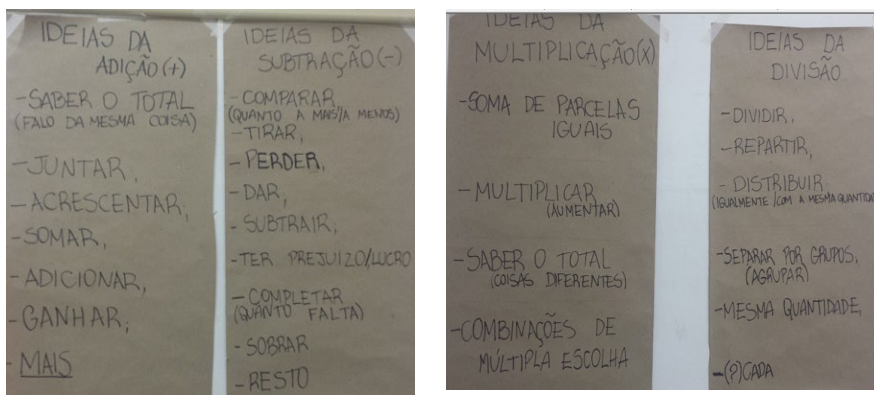 IDEIAS DA
ADIÇÃO(+)
-SABER O TOTAL
(FALO DA MESMA COISA)
-JUNTAR,
-ACRESCENTAR,
-SOMAR,
-ADICIONAR,
-GANHAR,
-MAIS
IDEIAS DA
SUBTRAÇÃO(-)
-COMPARAR
(QUANTO A MAIS/A MENOS)
-TIRAR,
-PERDER,
-DAR,
-SUBTRAIR,
-TER PREJUIZO/LUCRO
-COMPLETAR
(QUANTO FALTA)
-SOBRAR
-RESTO
IDEIAS DA
MULTIPLICAÇÃO(X)
-SOMA DE PARCELAS
IGUAIS
-MULTIPLICAR
(AUMENTAR)
-SABER O TOTAL
(COISAS DIFERENTES)
-COMBINAÇÕES DE
MÚLTIPLA ESCOLHA
IDEIAS DA
DIVISÃO
-DIVIDIR,
-REPARTIR,
-DISTRIBUIR
(IGUALMENTE/COM A MESMA QUANTIDA
-SEPARAR POR GRUPOS,
(AGRUPAR)
-MESMA QUANTIDADE,
-(?)CADA